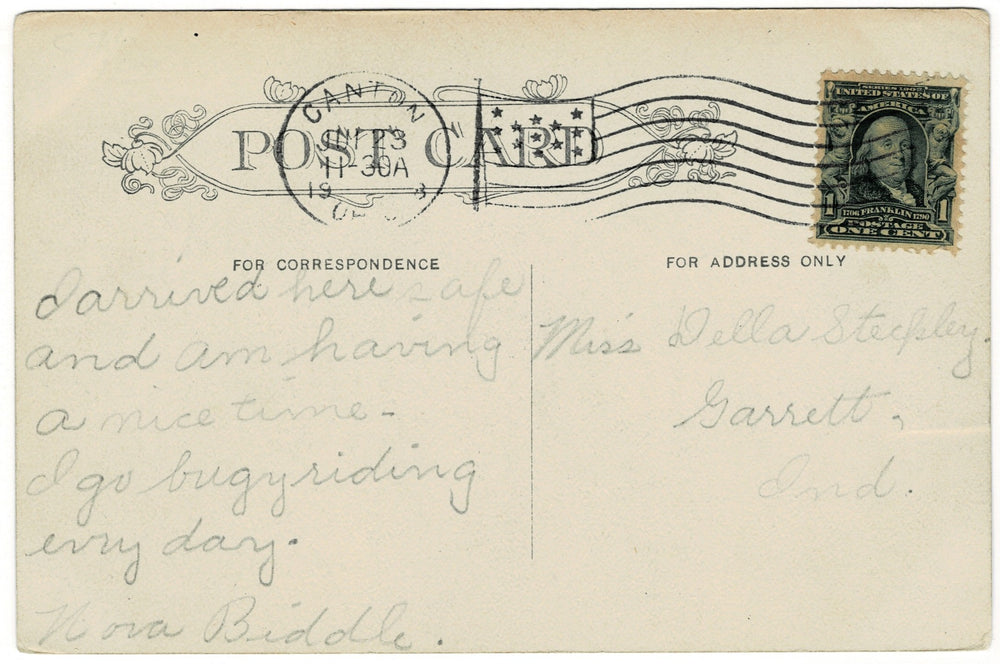 POST CARD
CANTON
11-30A
19
SERIES 1902
UNITED STATES OF
AMERICA
1 1706 FRANKLIN 1790 1
POSTAGE
ONE CENT
FOR CORRESPONDENCE
I arrived here safe
and am having
a nice time-
I go bugy riding
evry day.
Nora Biddle.
FOR ADDRESS ONLY
Miss Della Steckley.
Garrett,
Ind.